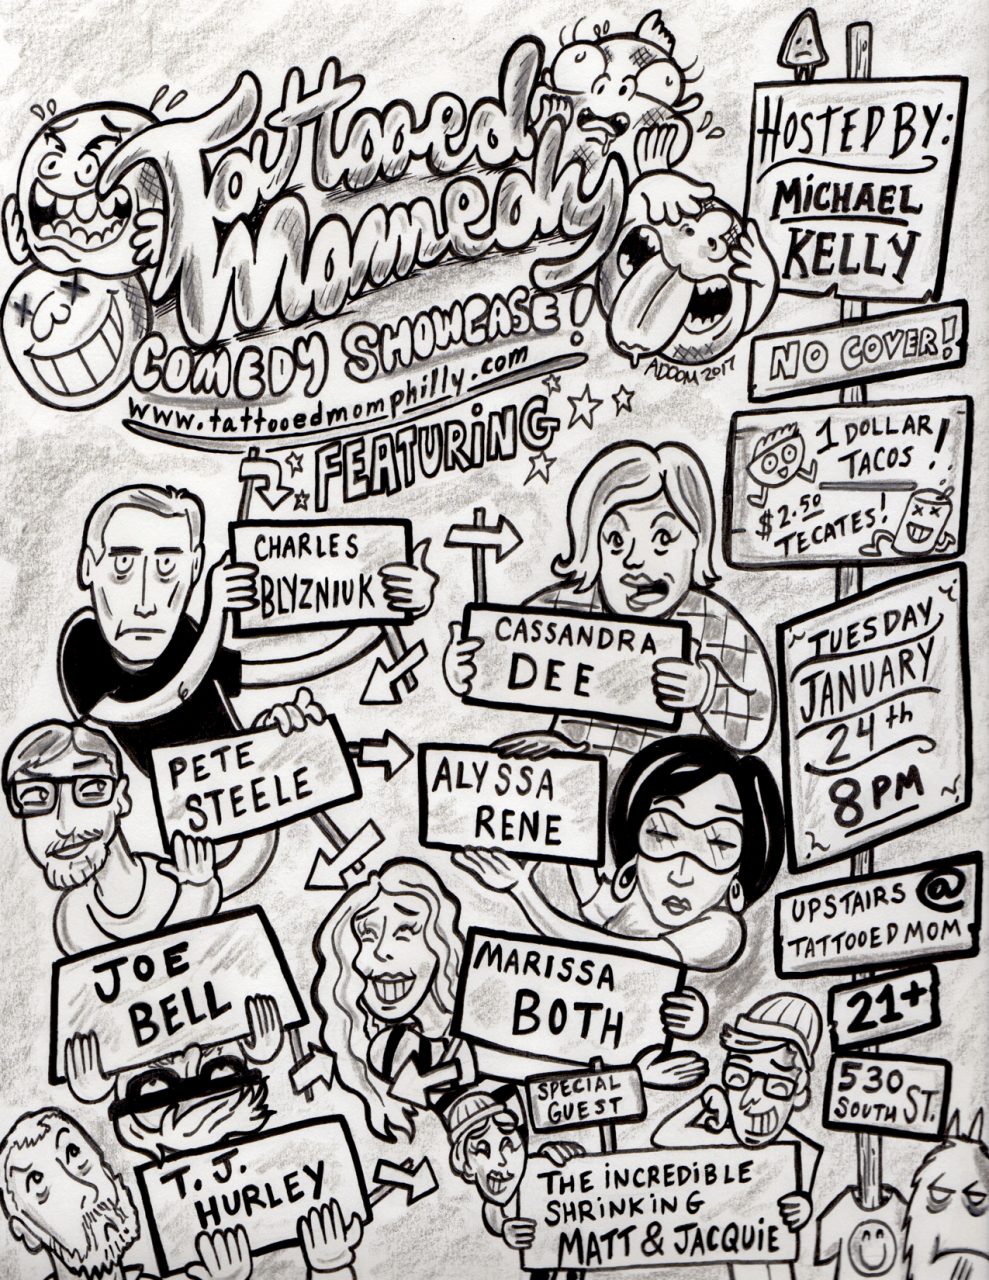 Tattooed
Momedy
COMEDY SHOWCASE!
www.tattooedmomphilly.com
ADOOM 2017
FEATURING
HOSTED BY:
MICHAEL
KELLY
NO COVER!
1 DOLLAR
TACOS!
$2.50
TECATES!
CHARLES
BLYZNIUK
CASSANDRA
DEE
TUESDAY
JANUARY
24th
8PM
PETE
STEELE
ALYSSA
RENE
UPSTAIRS @
TATTOOED MOM
JOE
BELL
MARISSA
BOTH
21+
530
SOUTH ST.
SPECIAL
GUEST
T.J.
HURLEY
THE INCREDIBLE
SHRINKING
MATT & JACQUIE